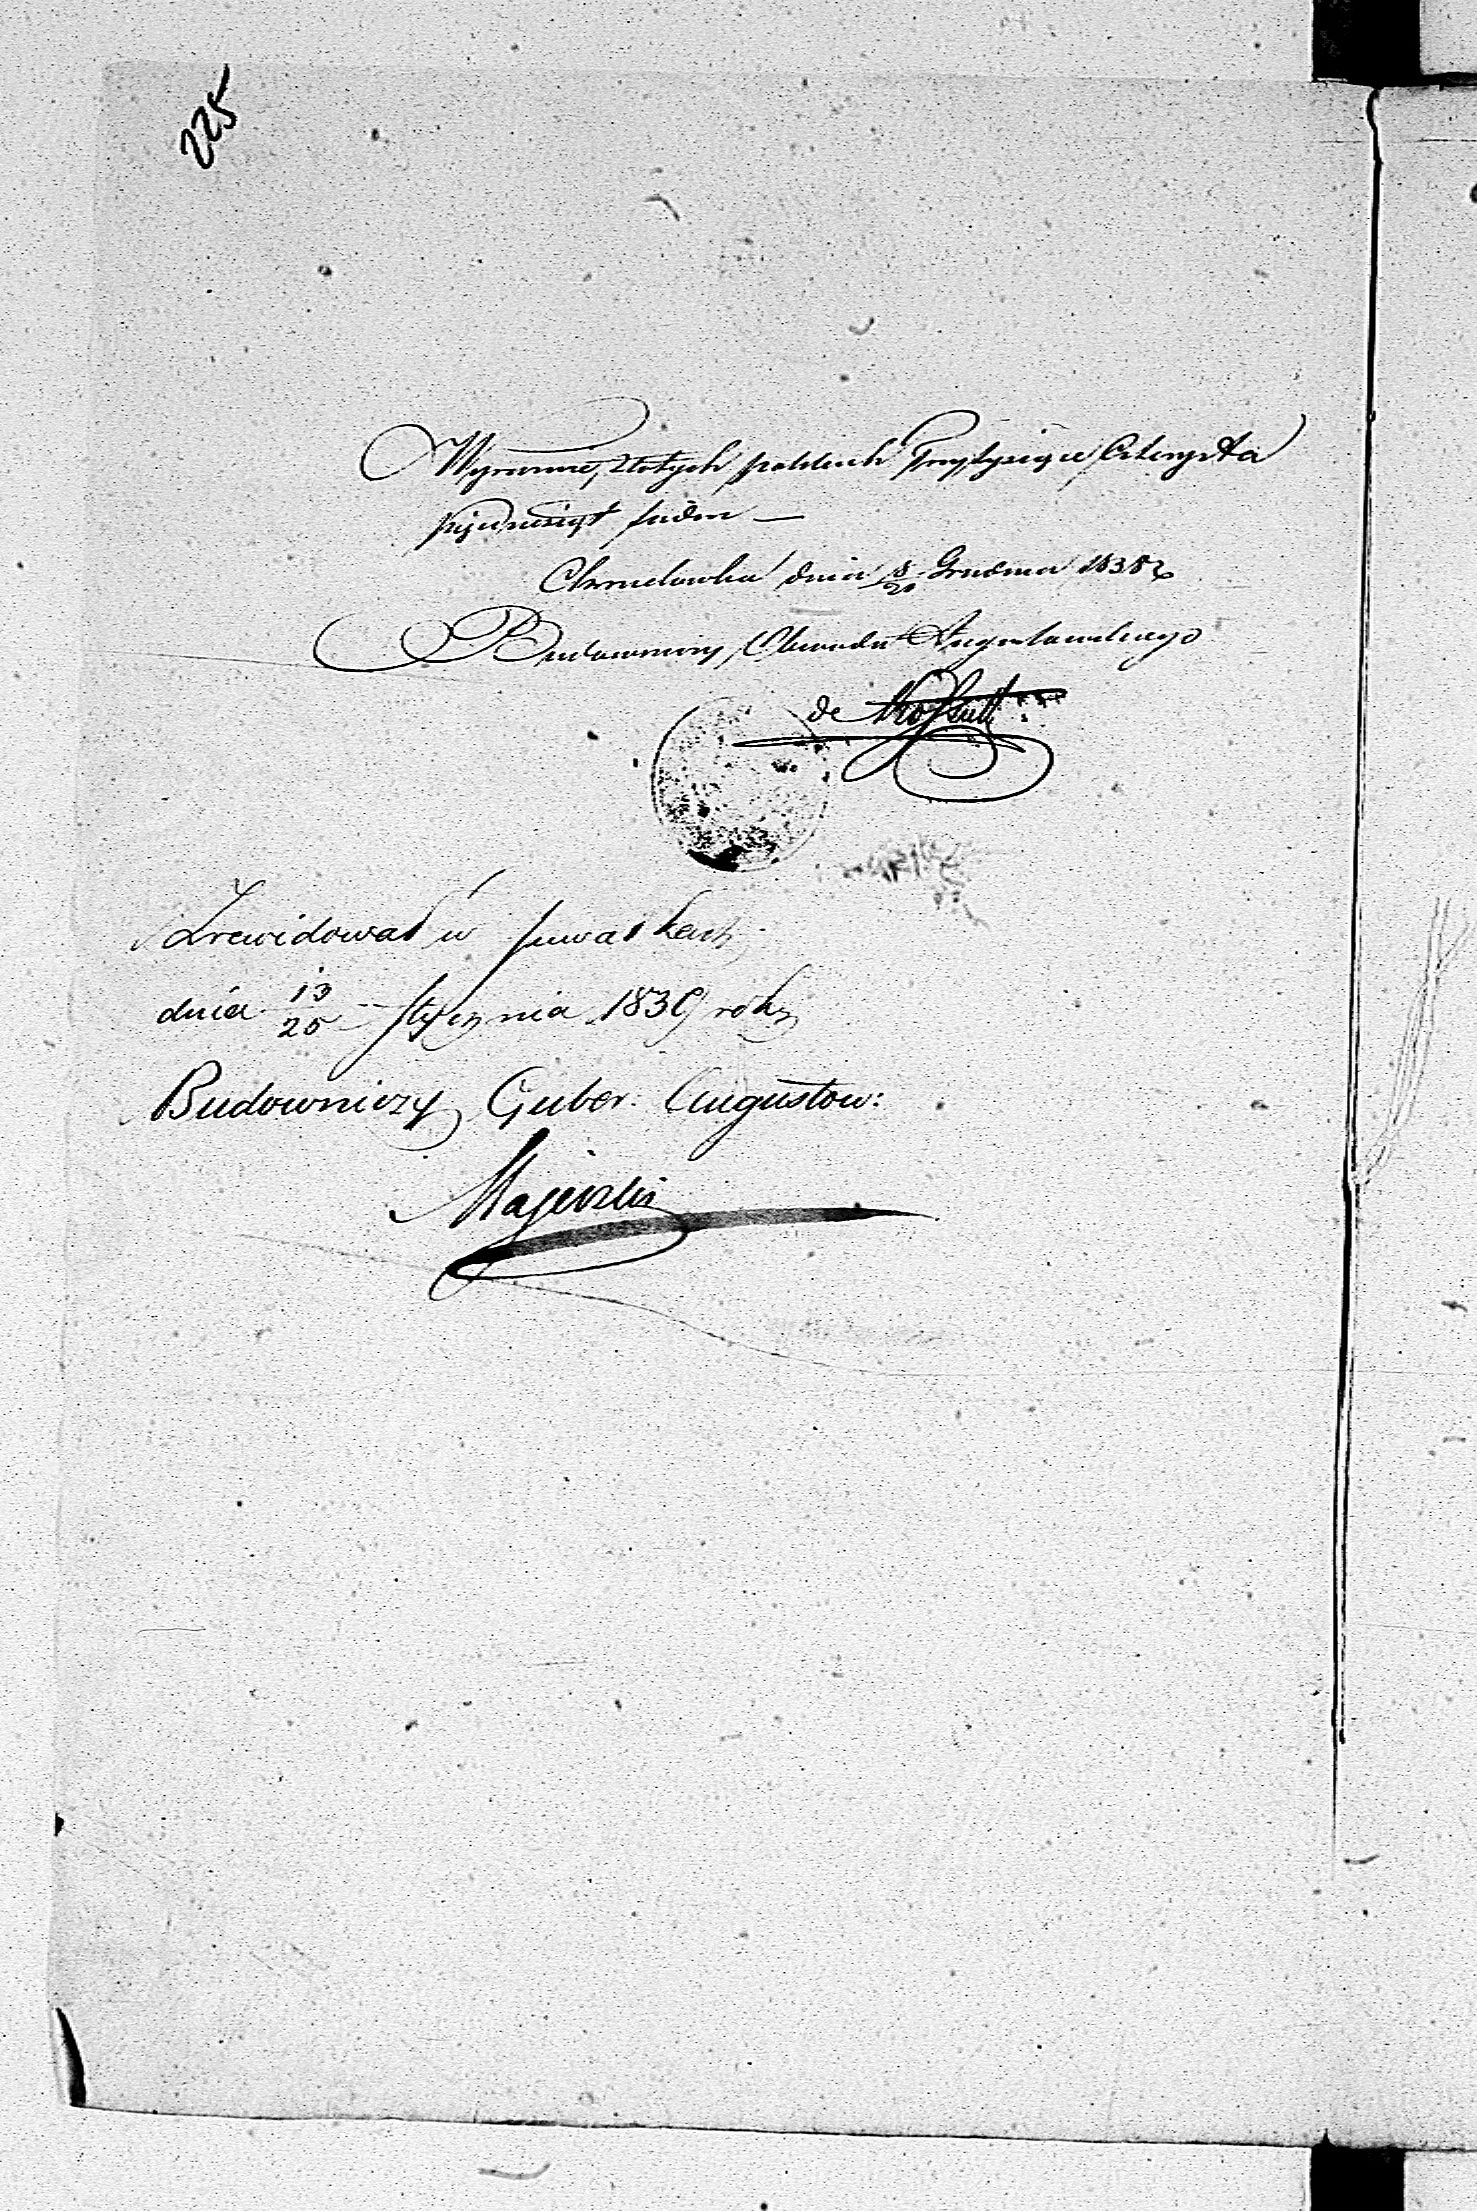 225
Wyraźnie, złotych polskich Trzytysiące Czterysta
pięćdziesiąt jeden —
dnia 8/20 Grudnia 1838 r
Budowniczy Obwodu Augustowskiego
de
Zrewidował w Suwałkach
dnia 13/25 Stycznia 1839 roku
Budowniczy Guber: Augustow:
Majewski